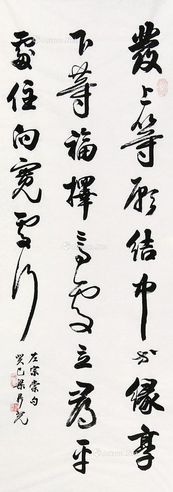 發上等願結中等緣享
下等福擇高處立尋平
處住向寬處行
左宗棠句
癸巳